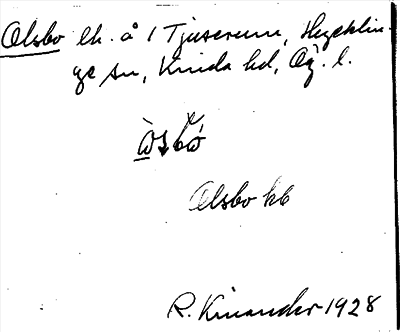 Olsbo lh. å 1 Tjuserum, Hycklin-
ge sn, Kinda hd, Ög. l.
Olsbo kb
R. Kinander 1928